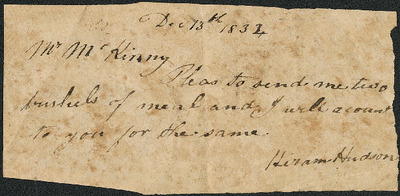 Dec 13th 1834
Mr McKinny
Pleas to send me two
bushels of meal and I will acount
to you for the same.
Hiram Hudson